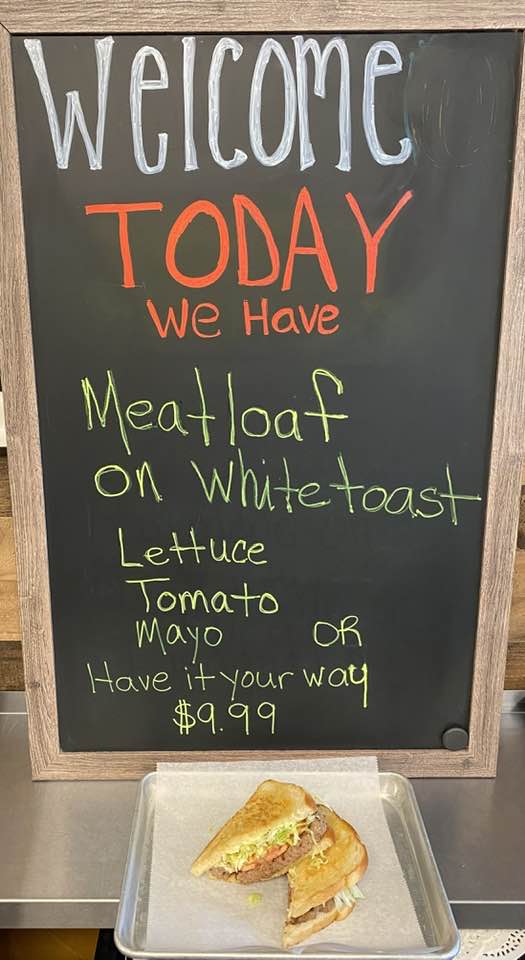 Welcome
TODAY
We Have
Meatloaf
on white toast
Lettuce
Tomato
Mayo OR
Have it your way
$9.99